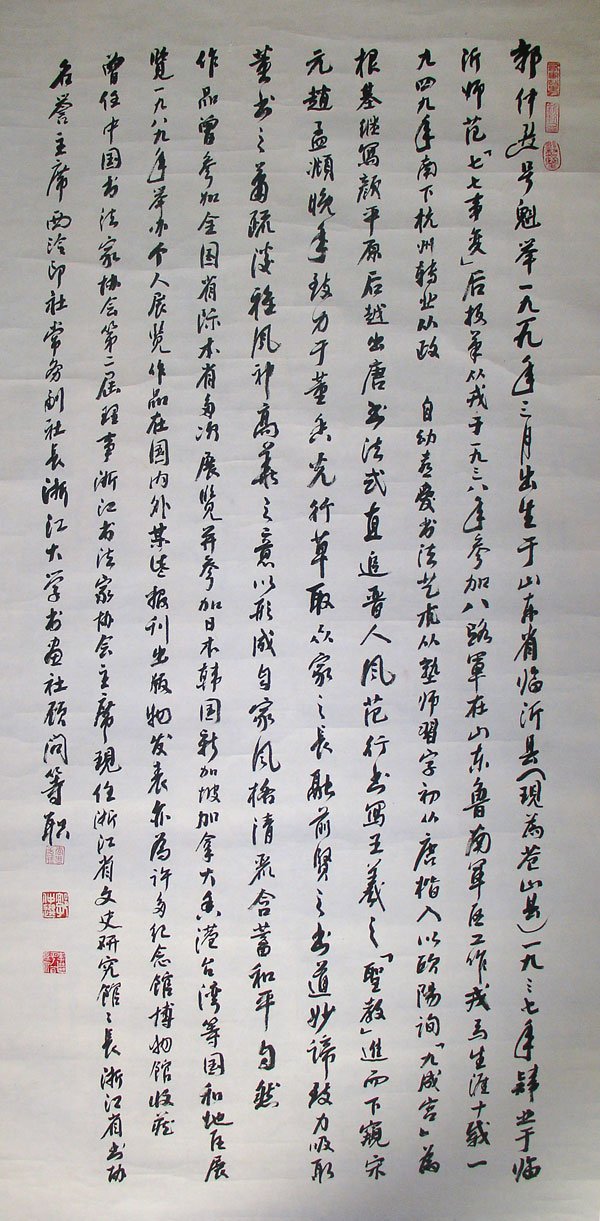 郭仲选号魁举一九一九年三月出生于山东省临沂县(现为苍山县)一九三七年肄业于临
沂师范「七七事变」后投笔从戎于一九三八年参加八路军在山东鲁南军区工作戎马生涯十载一
九四九年南下杭州转业从政 自幼喜爱书法艺术从塾师习字初从唐楷入以欧阳询「九成宫」为
根基继写颜平原后越出唐书法式直追晋人风范行书写王羲之「圣教」进而下窥宋
元赵孟頫晚年致力于董香光行草取众家之长融前贤之书道妙谛致力吸取
董书之萧疏淡雅风神高菶之意以形成自家风格清丽含蓄和平自然
作品曾参加全国省际本省多次展览并参加日本韩国新加坡加拿大香港台湾等国和地区展
览一九八九年举办个人展览作品在国内外某些报刊出版物发表亦为许多纪念馆博物馆收藏
曾任中国书法家协会第二届理事浙江书法家协会主席现任浙江省文史研究馆馆长浙江省书协
名誉主席西泠印社常务副社长浙江大学书画社顾问等职